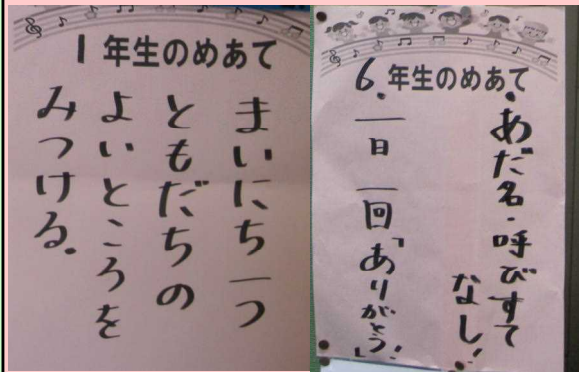 1年生のめあて
まいにち一つ
ともだちの
よいところを
みつける。
6年生のめあて
・あだ名・呼びすて
なし!
・一日一回「ありがとう!」